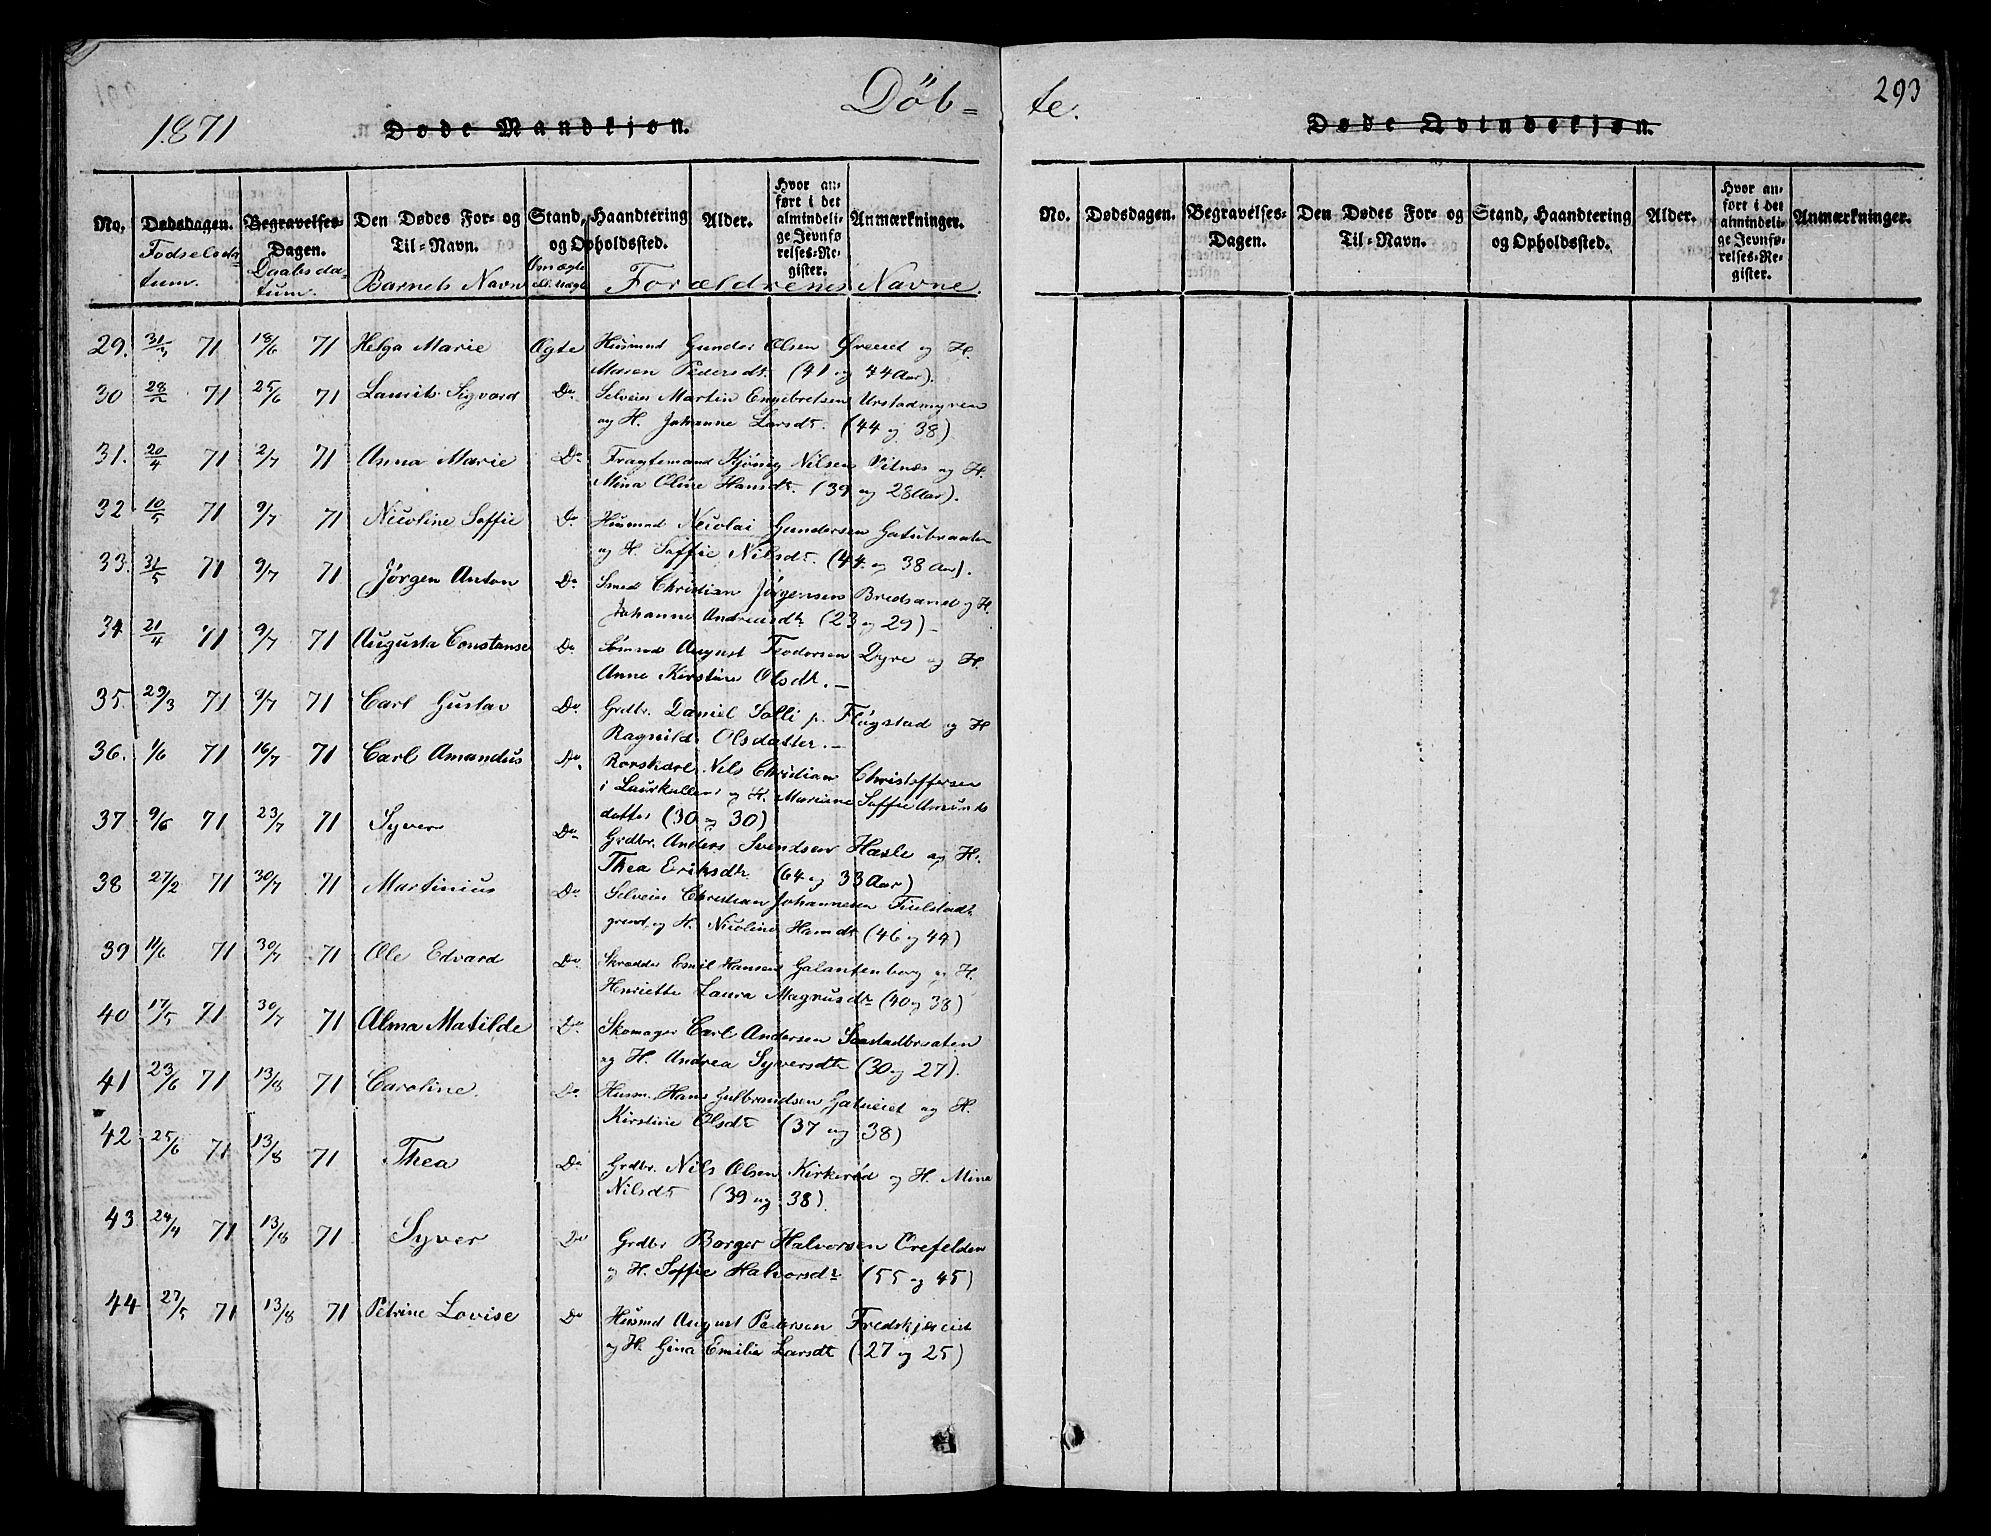 Døb=
te.
293
1871
Døde Mandkjøn.
Døde Qvindekjøn.
No. Dødsdagen. Begravelses-Dagen. Den Dødes For- og Til-Navn. Stand, Haandtering og Opholdssted. Alder. Hvor anført i det almindelige Jevnførelses-Register. Anmærkninger.
Fødselsdatum. Daabsdatum. Barnets Navn Om ægte ell. uægte Forældrenes Navne.
No. Dødsdagen. Begravelses-Dagen. Den Dødes For- og Til-Navn. Stand, Haandtering og Opholdssted. Alder. Hvor anført i det almindelige Jevnførelses-Register. Anmærkninger.
29. 31/3 71 18/6 71 Helga Marie Ægte Husmnd Gunder Olsen Øvereiet og H.
Maren Pedersdt. (41 og 44 Aar).
30 28/2 71 25/6 71 Laurits Sigvard Do. Selveier Martin Engebretsen Urstadmyren
og H. Johanne Larsdt. (44 og 38)
31. 20/4 71 2/7 71 Anna Marie Do Fragtemand Nilsen Vilnæs og H.
Mina Oline Hansdt. (39 og 28 Aar).
32 10/5 71 9/7 71 Nicoline Soffie Do. Husmnd Nicolai Gundersen Gatubraaten
og H. Soffie Nilsdt. (44 og 38 Aar).
33. 31/5 71 9/7 71 Jørgen Anton Do Smed Christian Jørgensen Bredsand og H.
Johanne Andreasdt (23 og 29) -
34 21/4 71 9/7 71 Augusta Constanse Do Sømnd August Teodorsen Dyre og H.
Anne Kirstine Olsdt. -
35. 29/3 71 9/7 71 Carl Gustav Do Grdbr. Daniel Solli p. Flugstad og H
Ragnild Olsdatter. -
36. 1/6 71 16/7 71 Carl Amandus Do. Rorskarl Nils Christian Christoffersen
i Laurkullen og H. Mariane Soffie Amunds
datter (30 og 30)
37 9/6 71 23/7 71 Syver Do Grdbr. Anders Svendsen Hasle og H.
Thea Eriksdt. (64 og 33 Aar)
38 27/2 71 30/7 71 Martinius Do Selveier Christian Johannesen
grund og H. Nicoline Hansdt (46 og 44)
39 11/6 71 30/7 71 Ole Edvard Do Skrædder Emil Hansen Galantenborg og H.
Henriette Laura Magnusdt (40 og 38)
40 17/5 71 30/7 71 Alma Matilde Do Skomager Carl Andersen Saastadbraaten
og H. Andrea Syversdt (30 og 27).
41 23/6 71 13/8 71 Caroline. Do. Husm. Hans Gulbrandsen Gatueiet og H.
Kirstine Olsdt (37 og 38)
42 25/6 71 13/8 71 Thea Do Grdbr. Nils Olsen Kirkerød og H. Mina
Nilsdt (39 og 38)
43 24/4 71 13/8 71 Syver Do Grdbr Borger Halvorsen Orefelden
og H. Soffie Halvorsdt (55 og 45)
44 27/5 71 13/8 71 Petrine Lovise Do Husmd August Pedersen
og H. Gina Emilie Larsdt (27 og 25)